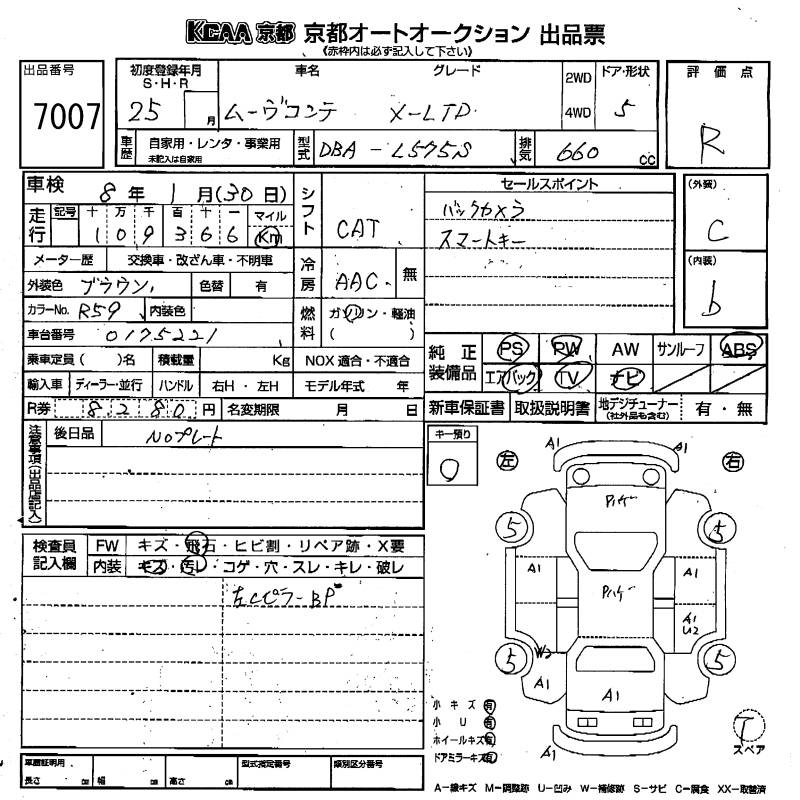 KCAA 京都 京都オートオークション 出品票
《赤枠内は必ず記入して下さい》
出品番号 7007
初度登録年月 S・H・R 25 月
車名 ムーヴコンテ
グレード X-LTD
2WD 4WD
ドア・形状 5
評価点 R
車歴 自家用・レンタ・事業用 未記入は自家用
型式 DBA-L575S
排気 660 cc
車検 8年 1月(30日)
シフト CAT
セールスポイント
バックカメラ
スマートキー
(外装) C
(内装) b
走行 記号 十 万 千 百 十 一 マイル Km
1 0 9 3 6 6
メーター歴 交換車・改ざん車・不明車
冷房 AAC 無
外装色 ブラウン 色替 有
カラーNo. R59 内装色
燃料 ガソリン・軽油 ( )
車台番号 0175221
乗車定員( )名 積載量 Kg NOX 適合・不適合
輸入車 ディーラー・並行 ハンドル 右H・左H モデル年式 年
R券 8280円 名変期限 月 日
純正装備品 PS PW AW サンルーフ ABS
エアバック TV ナビ
新車保証書 取扱説明書 地デジチューナー (社外品も含む) 有・無
注意事項(出品店記入)
後日品 Noプレート
キー預り 0
左 右
検査員記入欄
FW キズ・飛石・ヒビ割・リペア跡・X要
内装 キズ・汚レ・コゲ・穴・スレ・キレ・破レ
左Cピラー BP
A1 A1
Pハゲ
5 5
A1 A1
Pハゲ
A1 U2
W2
5 5
A1 A1
A1
小キズ 有
小U 有
ホイールキズ 有
ドアミラーキズ 有
T スペア
車庫証明用 長さ cm 幅 cm 高さ cm
型式指定番号 類別区分番号
A-線キズ M-調整跡 U-凹み W-補修跡 S-サビ C-腐食 XX-取替済